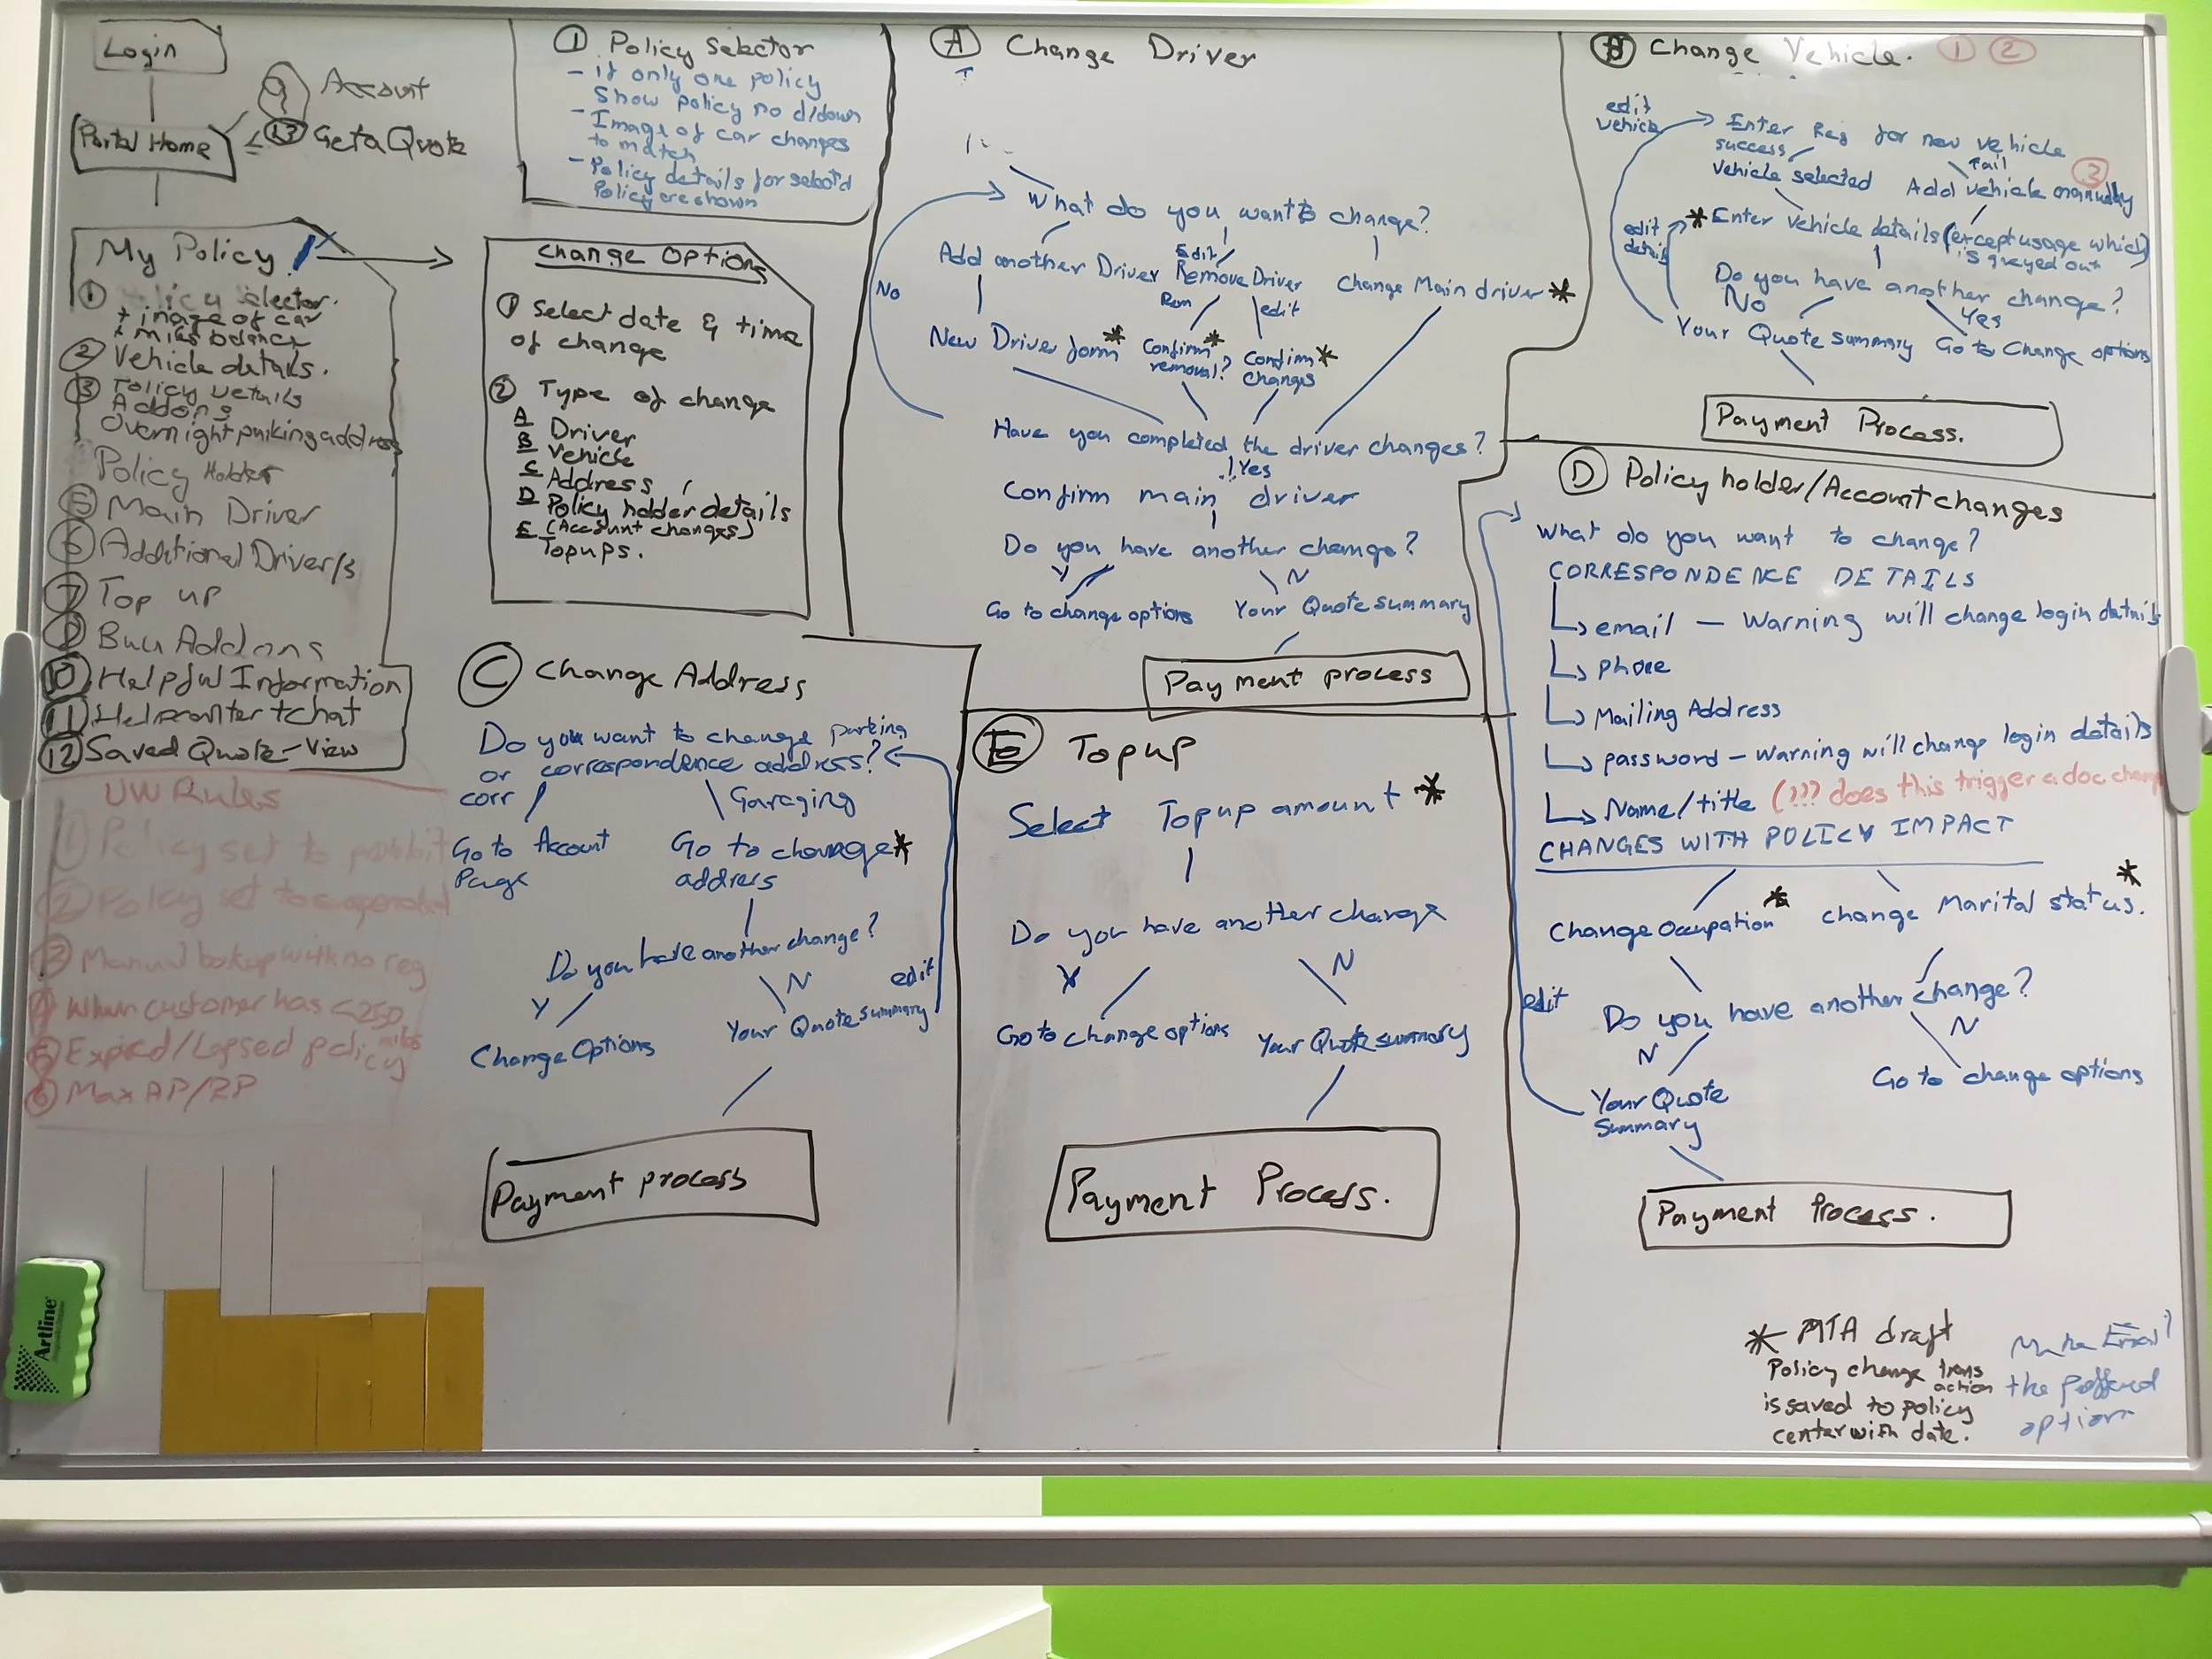 Login
9 Account
Portal Home
13 Get a Quote
My Policy
1 Policy selector.
+ image of car
+ miles balance
2 Vehicle details.
3 Policy Details
Addons
Overnight parking address
Policy Holder
5 Main Driver
6 Additional Driver/s
7 Top up
Addons
10 Helpful Information
11 + chat
12 Saved Quote - View
UW Rules
1 Policy set to prohibit
2 Policy set to
3 Manual lookup with no reg
4 When customer has <250 miles
5 Expired/Lapsed policy
6 Max AP/RP
Artline
1 Policy Selector
- if only one policy
Show policy no d/down
- Image of car changes
to match
- Policy details for select'd
Policy are shown
Change Options
1 Select date & time
of change
2 Type of change
A Driver
B Vehicle
C Address
D Policy holder details
(Account changes)
E Topups.
C Change Address
Do you want to change parking
or correspondence address?
corr
Garaging
Go to Account
Page
Go to change *
address
Do you have another change?
Y
N
edit
Change Options
Your Quote summary
Payment process
A Change Driver
What do you want to change?
Add another Driver
Edit/
Remove Driver
Change Main driver *
No
Rem
edit
New Driver form *
Confirm *
removal?
Confirm *
changes
Have you completed the driver changes?
Yes
Confirm main driver
Do you have another change?
Y
N
Go to change options
Your Quote summary
Payment process
E Topup
Select Topup amount *
Do you have another change
Y
N
Go to change options
Your Quote summary
Payment Process.
B Change Vehicle. 1 2
edit
vehicle
Enter Reg for new vehicle
success
fail
3
Vehicle selected
Add vehicle manually
edit
details
* Enter vehicle details (except usage which
is greyed out
Do you have another change?
No
Yes
Your Quote summary
Go to Change options
Payment Process.
D Policy holder/Account changes
What do you want to change?
CORRESPONDENCE DETAILS
email - Warning will change login details
phone
Mailing Address
password - Warning will change login details
Name/title (??? does this trigger a doc change
CHANGES WITH POLICY IMPACT
Change Occupation *
change Marital status. *
edit
Do you have another change?
N
N
Your Quote
Summary
Go to change options
Payment Process.
* MTA draft
Policy change transaction
is saved to policy
center with date.
the
option